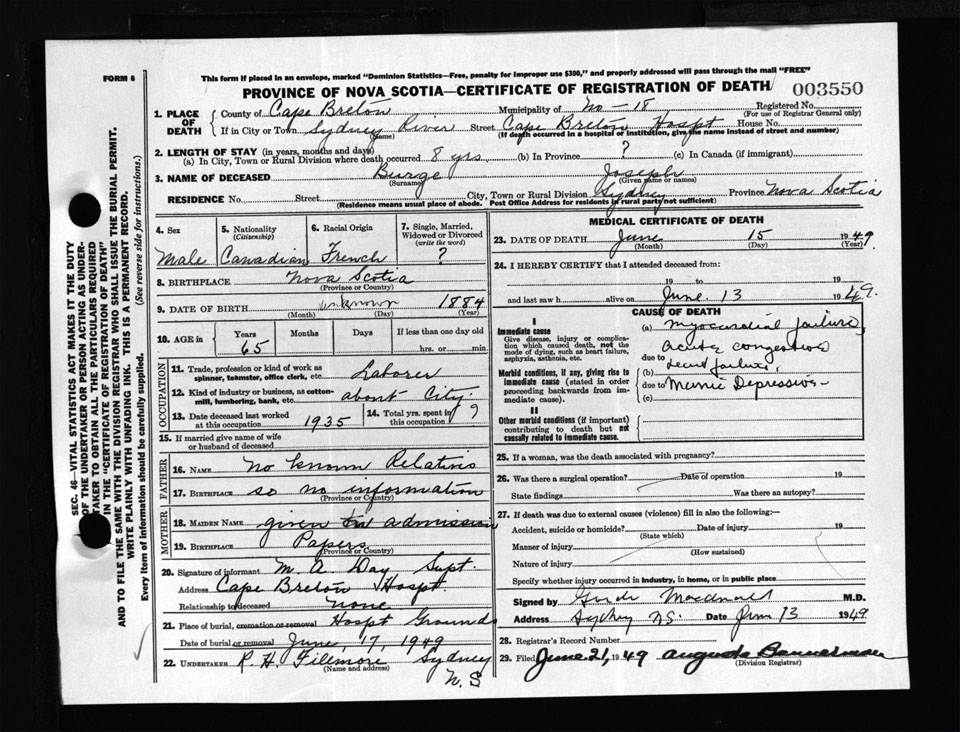 FORM 6
This form if placed in an envelope, marked "Dominion Statistics—Free, penalty for improper use $300," and properly addressed will pass through the mail "FREE"
PROVINCE OF NOVA SCOTIA—CERTIFICATE OF REGISTRATION OF DEATH 003550
1. PLACE OF DEATH
County of Cape Breton Municipality of No - 18 Registered No.
(For use of Registrar General only)
If in City or Town Sydney River Street Cape Breton Hospt House No.
(Name) (If death occurred in a hospital or institution, give the name instead of street and number)
2. LENGTH OF STAY (in years, months and days)
(a) In City, Town or Rural Division where death occurred 8 yrs (b) In Province ? (c) In Canada (if immigrant)
3. NAME OF DECEASED Burge Joseph
(Surname) (Given name or names)
RESIDENCE No. Street City, Town or Rural Division Sydney Province Nova Scotia
(Residence means usual place of abode. Post Office Address for residents in rural parts not sufficient)
4. Sex 5. Nationality (Citizenship) 6. Racial Origin 7. Single, Married, Widowed or Divorced (write the word)
Male Canadian French ?
8. BIRTHPLACE Nova Scotia
(Province or Country)
9. DATE OF BIRTH unknown 1884
(Month) (Day) (Year)
10. AGE in Years Months Days If less than one day old
65 hrs. or min.
OCCUPATION
11. Trade, profession or kind of work as spinner, teamster, office clerk, etc. Laborer
12. Kind of industry or business, as cotton-mill, lumbering, bank, etc. about City
13. Date deceased last worked at this occupation 1935 14. Total yrs. spent in this occupation ?
15. If married give name of wife or husband of deceased
FATHER
16. NAME No known Relatives
17. BIRTHPLACE so no information
(Province or Country)
MOTHER
18. MAIDEN NAME given admission
19. BIRTHPLACE Papers
(Province or Country)
20. Signature of informant M. A. Day Supt.
Address Cape Breton Hospt.
Relationship to deceased none
21. Place of burial, cremation or removal Hospt Grounds
Date of burial or removal June, 17, 1949
22. UNDERTAKER P. H. Fillmore Sydney
(Name and address) N. S
MEDICAL CERTIFICATE OF DEATH
23. DATE OF DEATH June 15 1949
(Month) (Day) (Year)
24. I HEREBY CERTIFY that I attended deceased from:
19 to 19
and last saw h alive on June 13 1949.
CAUSE OF DEATH
I
Immediate cause
Give disease, injury or complication which caused death, not the mode of dying, such as heart failure, asphyxia, asthenia, etc.
Morbid conditions, if any, giving rise to immediate cause (stated in order proceeding backwards from immediate cause).
II
Other morbid conditions (if important) contributing to death but not causally related to immediate cause.
(a) Myocardial failure
acute congestive
due to
(b) heart failure,
due to Manic Depression
(c)
25. If a woman, was the death associated with pregnancy?
26. Was there a surgical operation? Date of operation 19
State findings Was there an autopsy?
27. If death was due to external causes (violence) fill in also the following:—
Accident, suicide or homicide? Date of injury 19
(State which)
Manner of injury
(How sustained)
Nature of injury
Specify whether injury occurred in industry, in home, or in public place
Signed by Macdonald M.D.
Address Sydney NS Date June 13 1949
28. Registrar's Record Number
29. Filed June 21, 1949 Augusta Bannerman
(Division Registrar)
SEC. 46—VITAL STATISTICS ACT MAKES IT THE DUTY
OF THE UNDERTAKER OR PERSON ACTING AS UNDERTAKER TO OBTAIN ALL THE PARTICULARS REQUIRED
IN THE "CERTIFICATE OF REGISTRATION OF DEATH"
AND TO FILE THE SAME WITH THE DIVISION REGISTRAR WHO SHALL ISSUE THE BURIAL PERMIT.
WRITE PLAINLY WITH UNFADING INK. THIS IS A PERMANENT RECORD.
Every item of information should be carefully supplied. (See reverse side for instructions.)